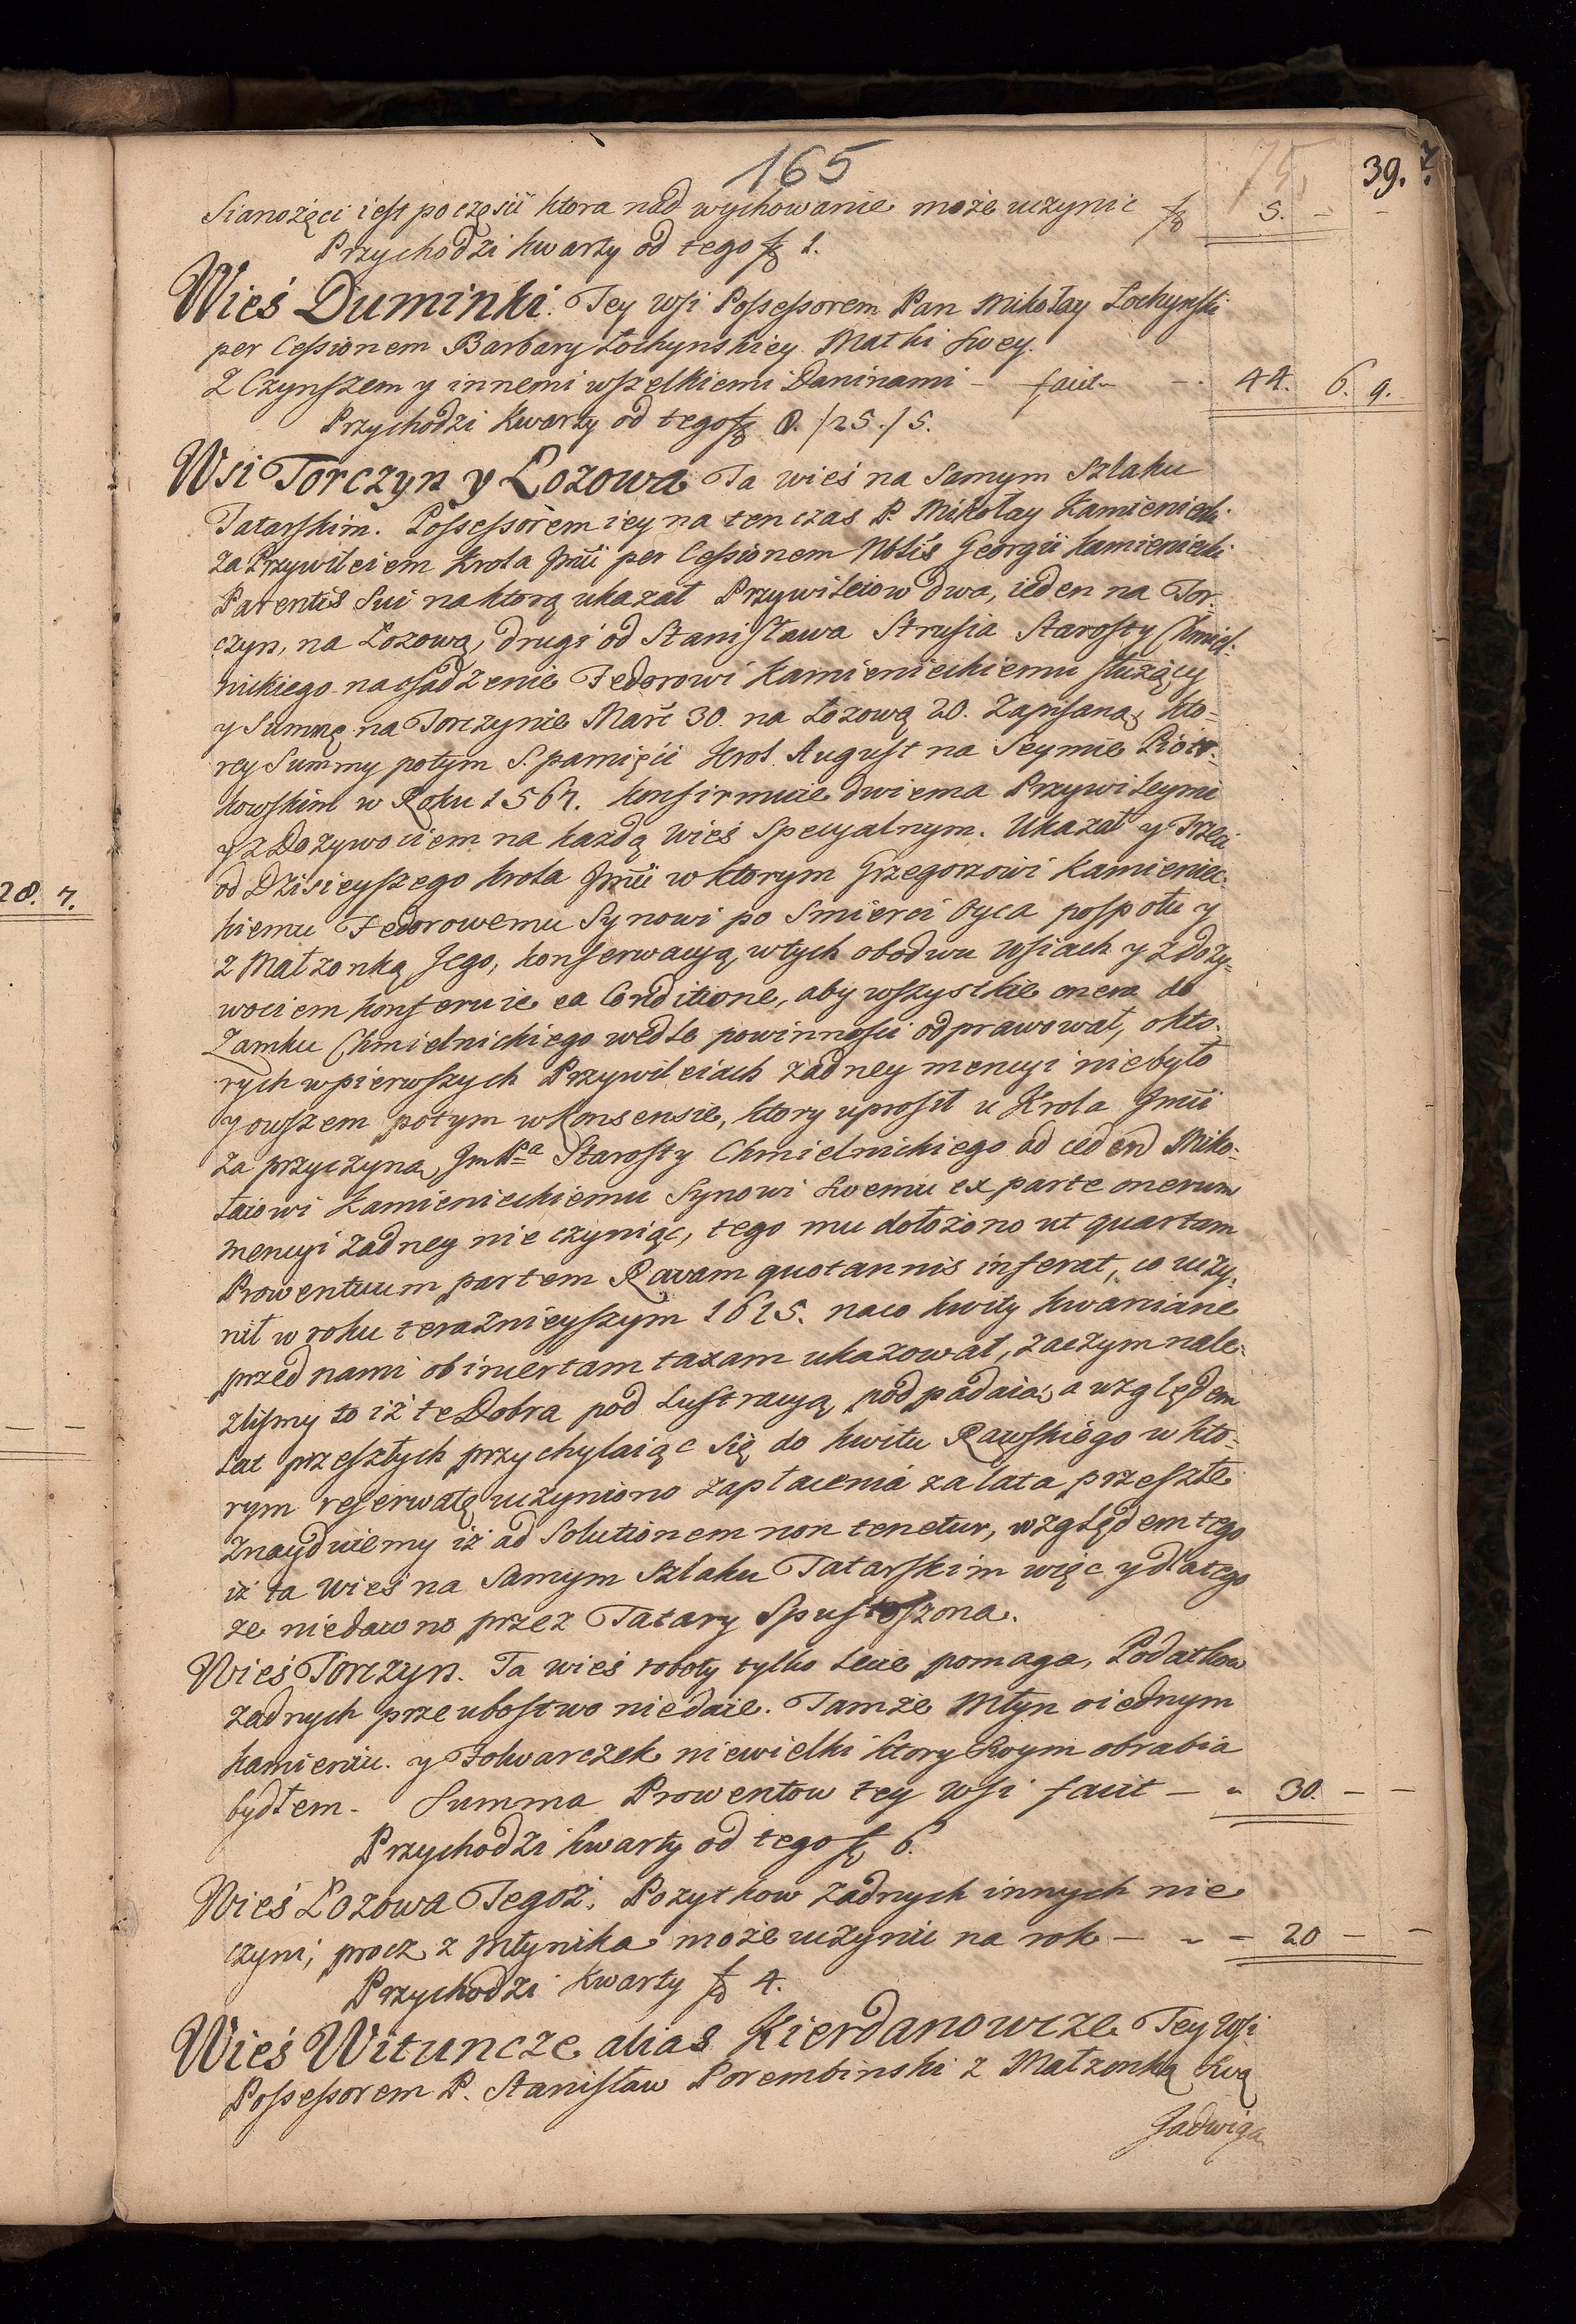 165
75.
39.
Sianożęci iest poczęsii ktora nad wychowanie może uczynic f 5. - -
Przychodzi kwarty od tego f 1.
Wieś Duminki. Tey wsi Possessorem Pan Mikołay Łochynski
per Cessionem Barbary Łochynskiey Matki swey.
Z Czynszem y innemi wszelkiemi Daninami - facit - - 44. 6. 9.
Przychodzi Kwarty od tego f 8. /25./5.
Wsi Torczyn y Lozowa Ta wieś na Samym Szlaku
Tatarskim. Possessorem iey na ten czas P. Mikołay Kamieniecki
za Przywileiem Krola Jmci per Cessionem Nblis Georgii Kamieniecki
Parentis Sui na ktorą ukazał Przywileiow dwa, ieden na Tor-
czyn, na Lozową, drugi od Stanisława Strusia Starosty Chmiel-
nickiego na osadzenie Fedorowi Kamienieckiemu służący
y Summę na Torczynie Marc 30. na Łozową 20. Zapisaną, kto-
rey Summy potym S. pamięci Krol August na Seymie Piotr-
kowskim w Roku 1567. konfirmuie dwiema Przywileymi
y z Dożywociem na każdą wieś Specyalnym. Ukazał y Trzeci
od Dzisieyszego Krola Jmci w ktorym Grzegorzowi Kamieniec-
kiemu Fedorowemu Synowi po Smierci Oyca pospołu y
z Małzonką Jego, konserwacyą w tych obodwu Wsiach y z doży-
wociem konferuie ea Conditione, aby wszystkie onera do
Zamku Chmielnickiego wedle powinności odprawował, o kto-
rych w pierwszych Przywileiach żadney mencyi niebyło
y owszem potym w Konsensie, ktory uprosił u Krola Jmci
za przyczyną Jm Pa Starosty Chmielnickiego ad ceden Miko-
łaiowi Kamienieckiemu Synowi swemu ex parte onerum
mencyi żadney nie czyniąc, tego mu dołożono ut quartam
Prowentuum partem Ravam quotannis inferat, co uczy-
nił w roku teraznieyszym 1615. na co kwity kwarciane
przed nami ob incertam taxam ukazował, zaczym nale-
zlismy to iż te Dobra pod Lustracyą podpadaią, a względem
Lat przeszłych przychylaiąc się do kwitu Rawskiego w kto-
rym reserwatę uczyniono zapłacenia za lata przeszłe
znayduiemy iż ad Solutionem non tenetur, względem tego
iż ta wieś na Samym Szlaku Tatarskim więc y dlatego
że niedawno przez Tatary Spustoszona.
Wieś Torczyn. Ta wieś roboty tylko Lecie pomaga, Podatkow
żadnych prze ubostwo niedaie. Tamże Młyn o iednym
kamieniu. y Folwarczek niewielki ktory Swym obrabia
bydłem - Summa Prowentow tey Wsi facit - - 30. - -
Przychodzi kwarty od tego f 6.
Wieś Lozowa Tegoż. Pożytkow żadnych innych nie
czyni; procz z Młynika może uczynic na rok - - - 20 - -
Przychodzi Kwarty f 4.
Wieś Wituncze alias Kierdanowcze Tey Wsi
Possessorem P. Stanisław Porembinski z Małzonką Swą
Jadwigą
28. 7.